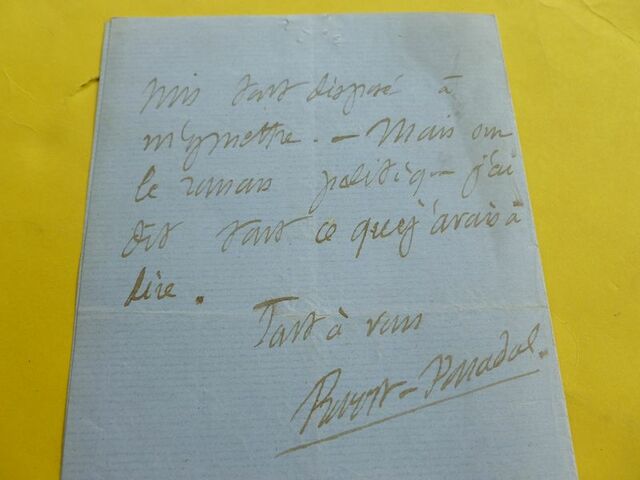 suis tout disposé à
m'y mettre. — Mais sur
le roman politiq— j'ai
dit tout ce que j'avais à
dire.
Tout à vous
Prevost-Paradol.